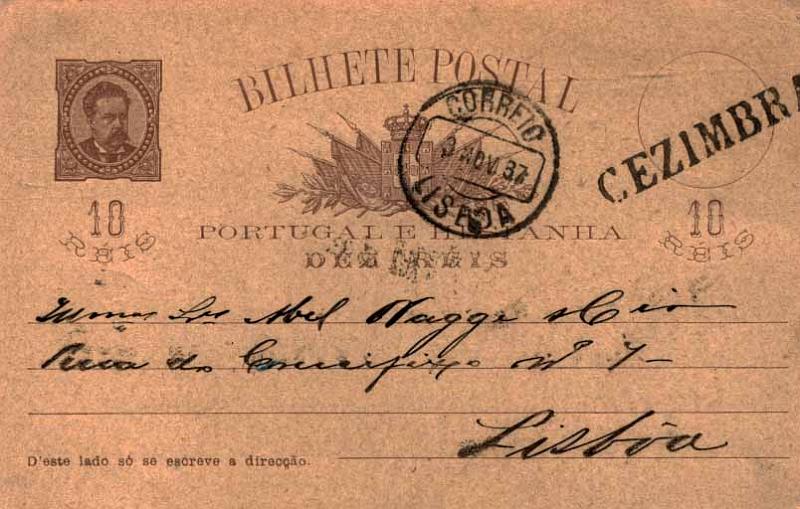 BILHETE POSTAL
CORREIO
9 NOV. 87
LISBOA
CEZIMBRA
10
RÉIS
10
RÉIS
PORTUGAL E HESPANHA
DEZ RÉIS
Abel
Rua do Crucifixo Nº 7
Lisbôa
D'este lado só se escreve a direcção.